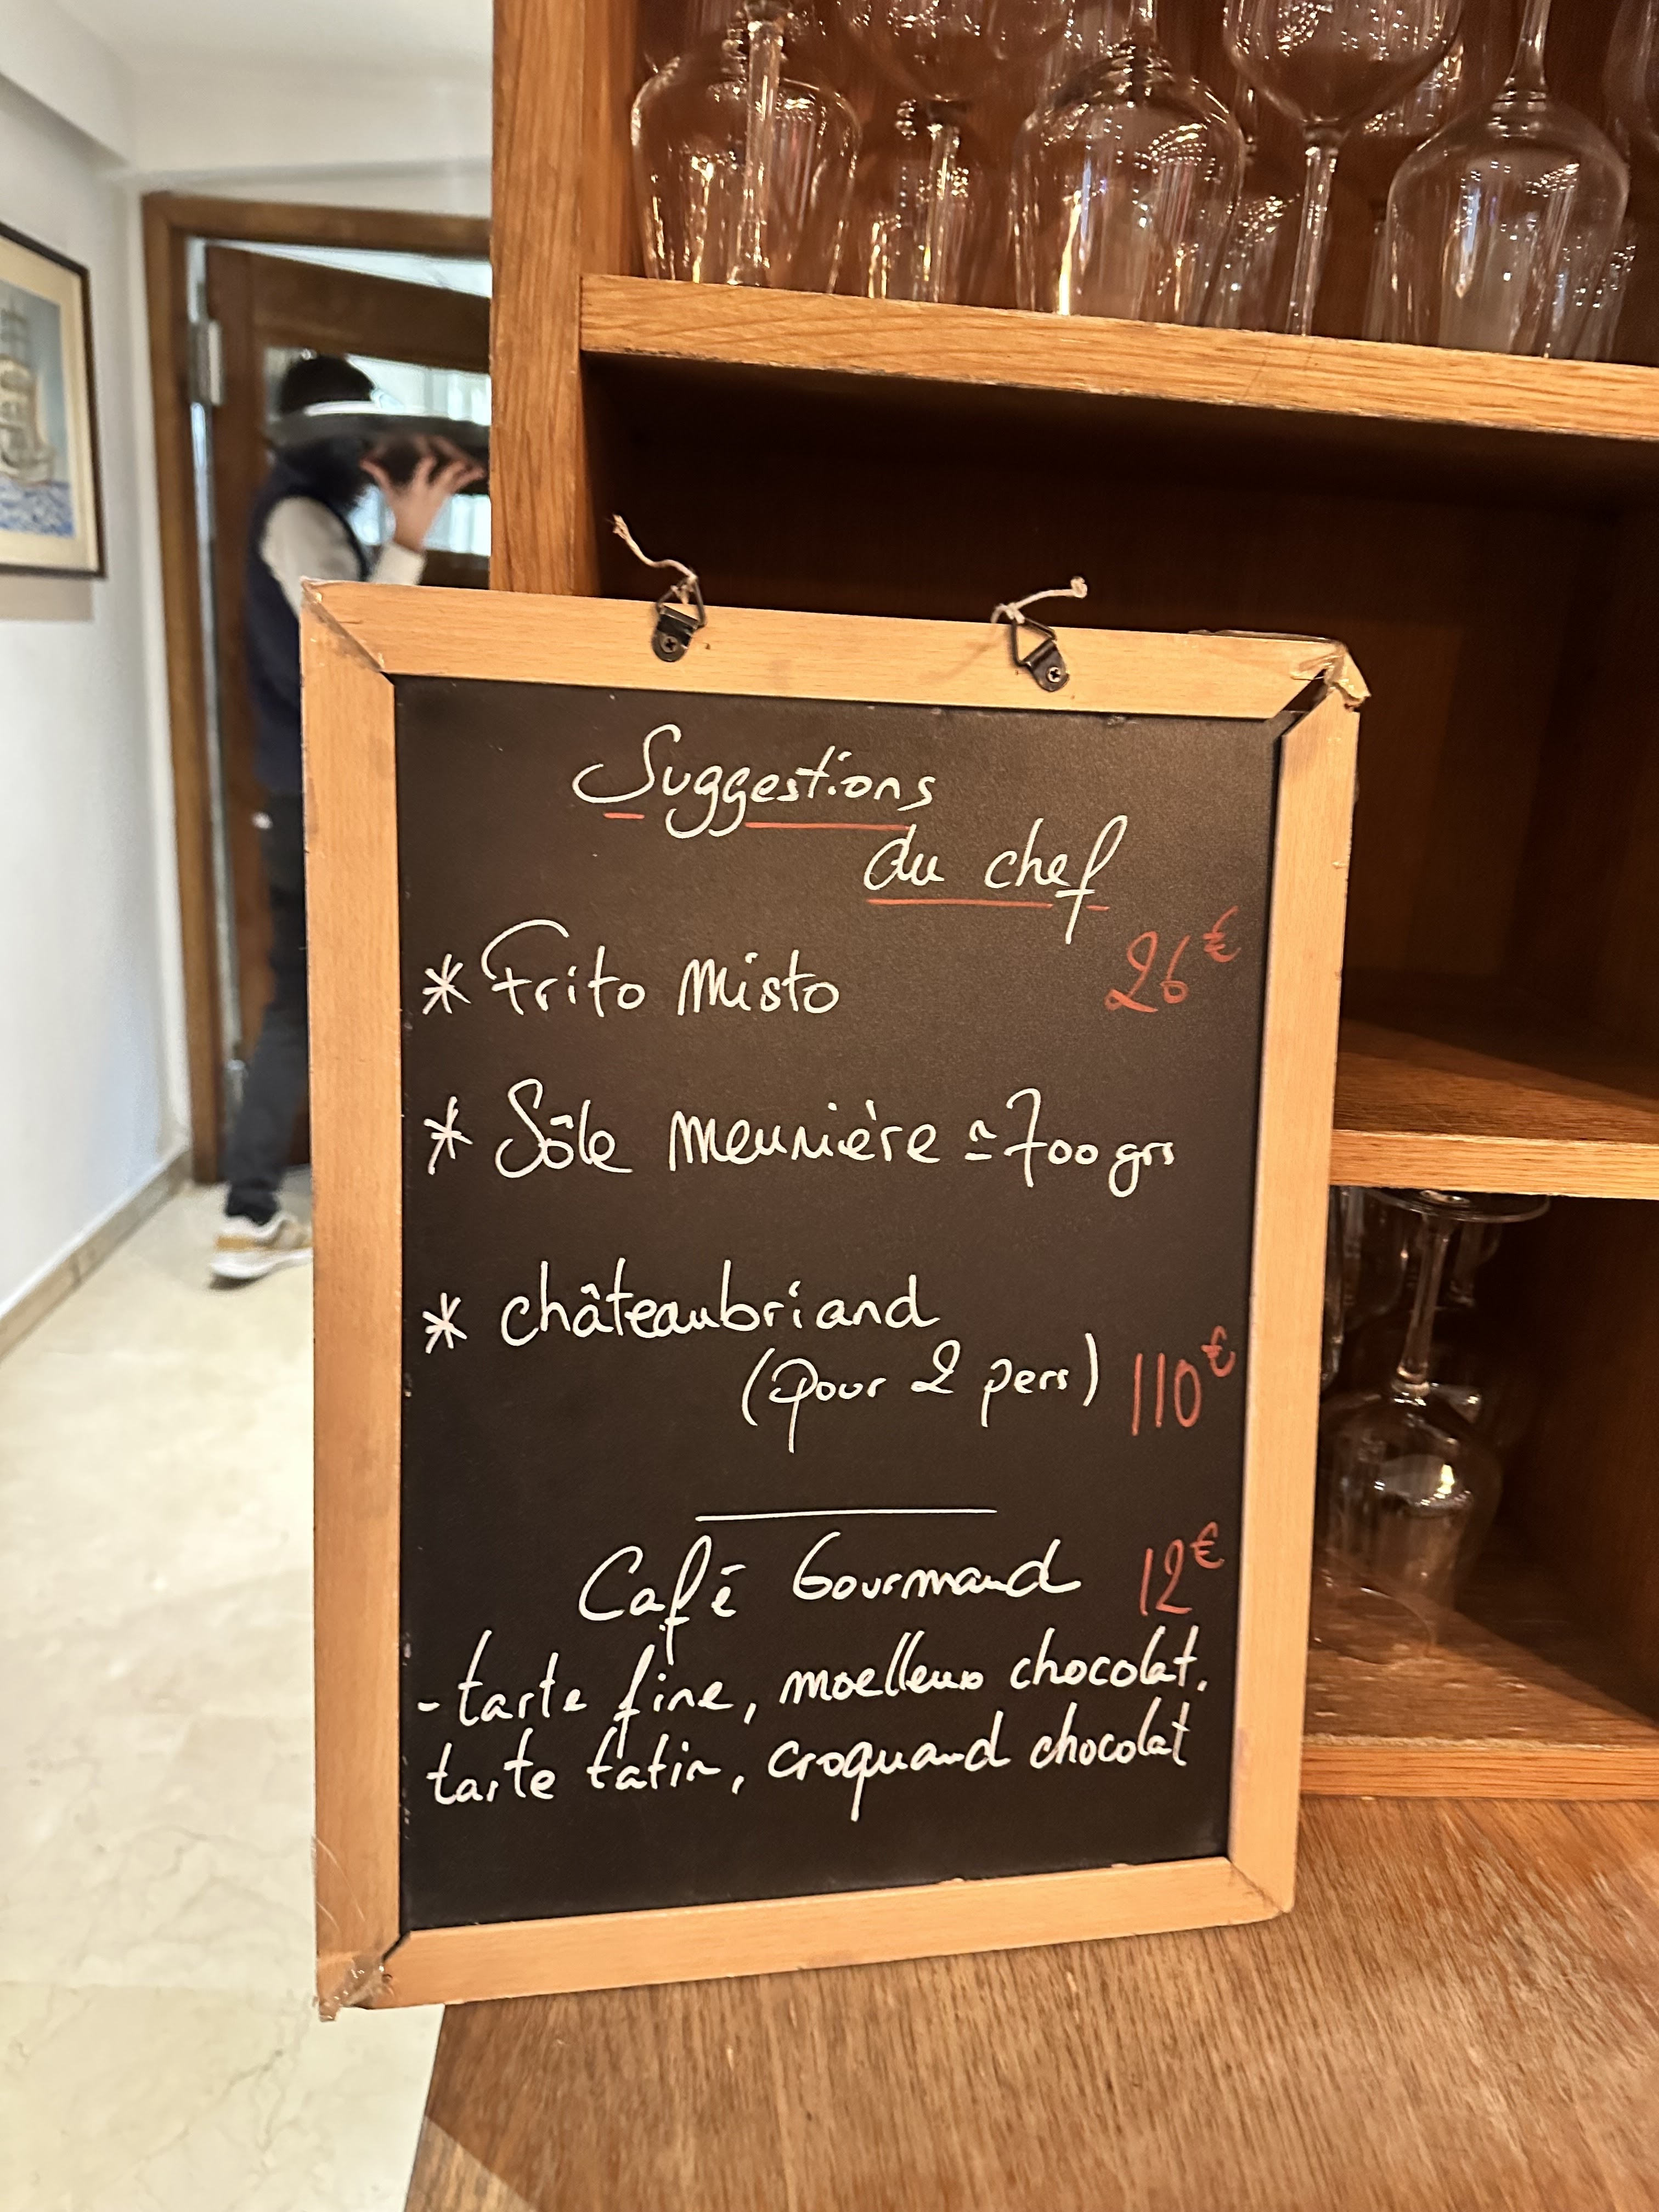 Suggestions
du chef
* Frito Misto 26€
* Sôle meunière ≃ 700 grs
* châteaubriand
(pour 2 pers) 110€
Café Gourmand 12€
- tarte fine, moelleux chocolat,
tarte tatin, croquand chocolat